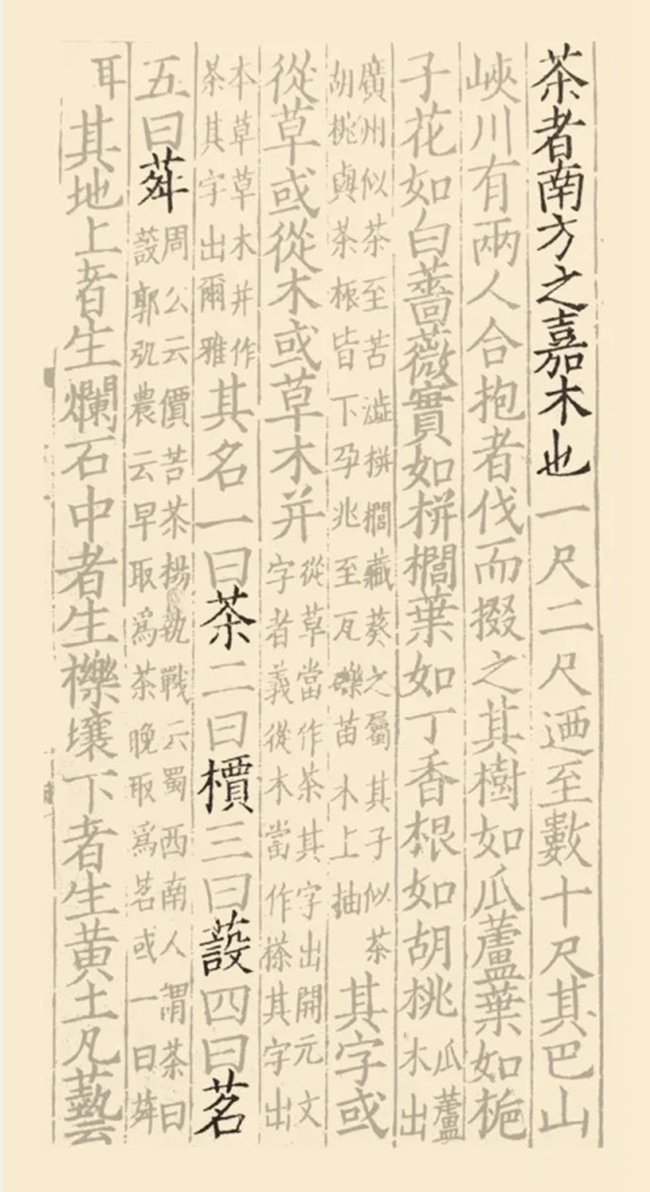 茶者南方之嘉木也一尺二尺迺至數十尺其巴山
峽川有兩人合抱者伐而掇之其樹如瓜蘆葉如梔
子花如白薔薇實如栟櫚葉如丁香根如胡桃瓜蘆木出
廣州似茶至苦澁栟櫚藏葵之屬其子似茶
胡桃與茶根皆下孕兆至瓦礫苗木上抽
其字或
從草或從木或草木并
從草當作茶其字出開元文
字者義從木當作其字出
本草草木并作
茶其字出爾雅
其名一曰茶二曰檟三曰蔎四曰茗
五曰荈
周公云價苦茶楊執戰云蜀西南人謂茶曰
蔎郭弘農云早取爲茶晚取爲茗或一曰荈
耳
其地上者生爛石中者生櫟壤下者生黄土凡藝